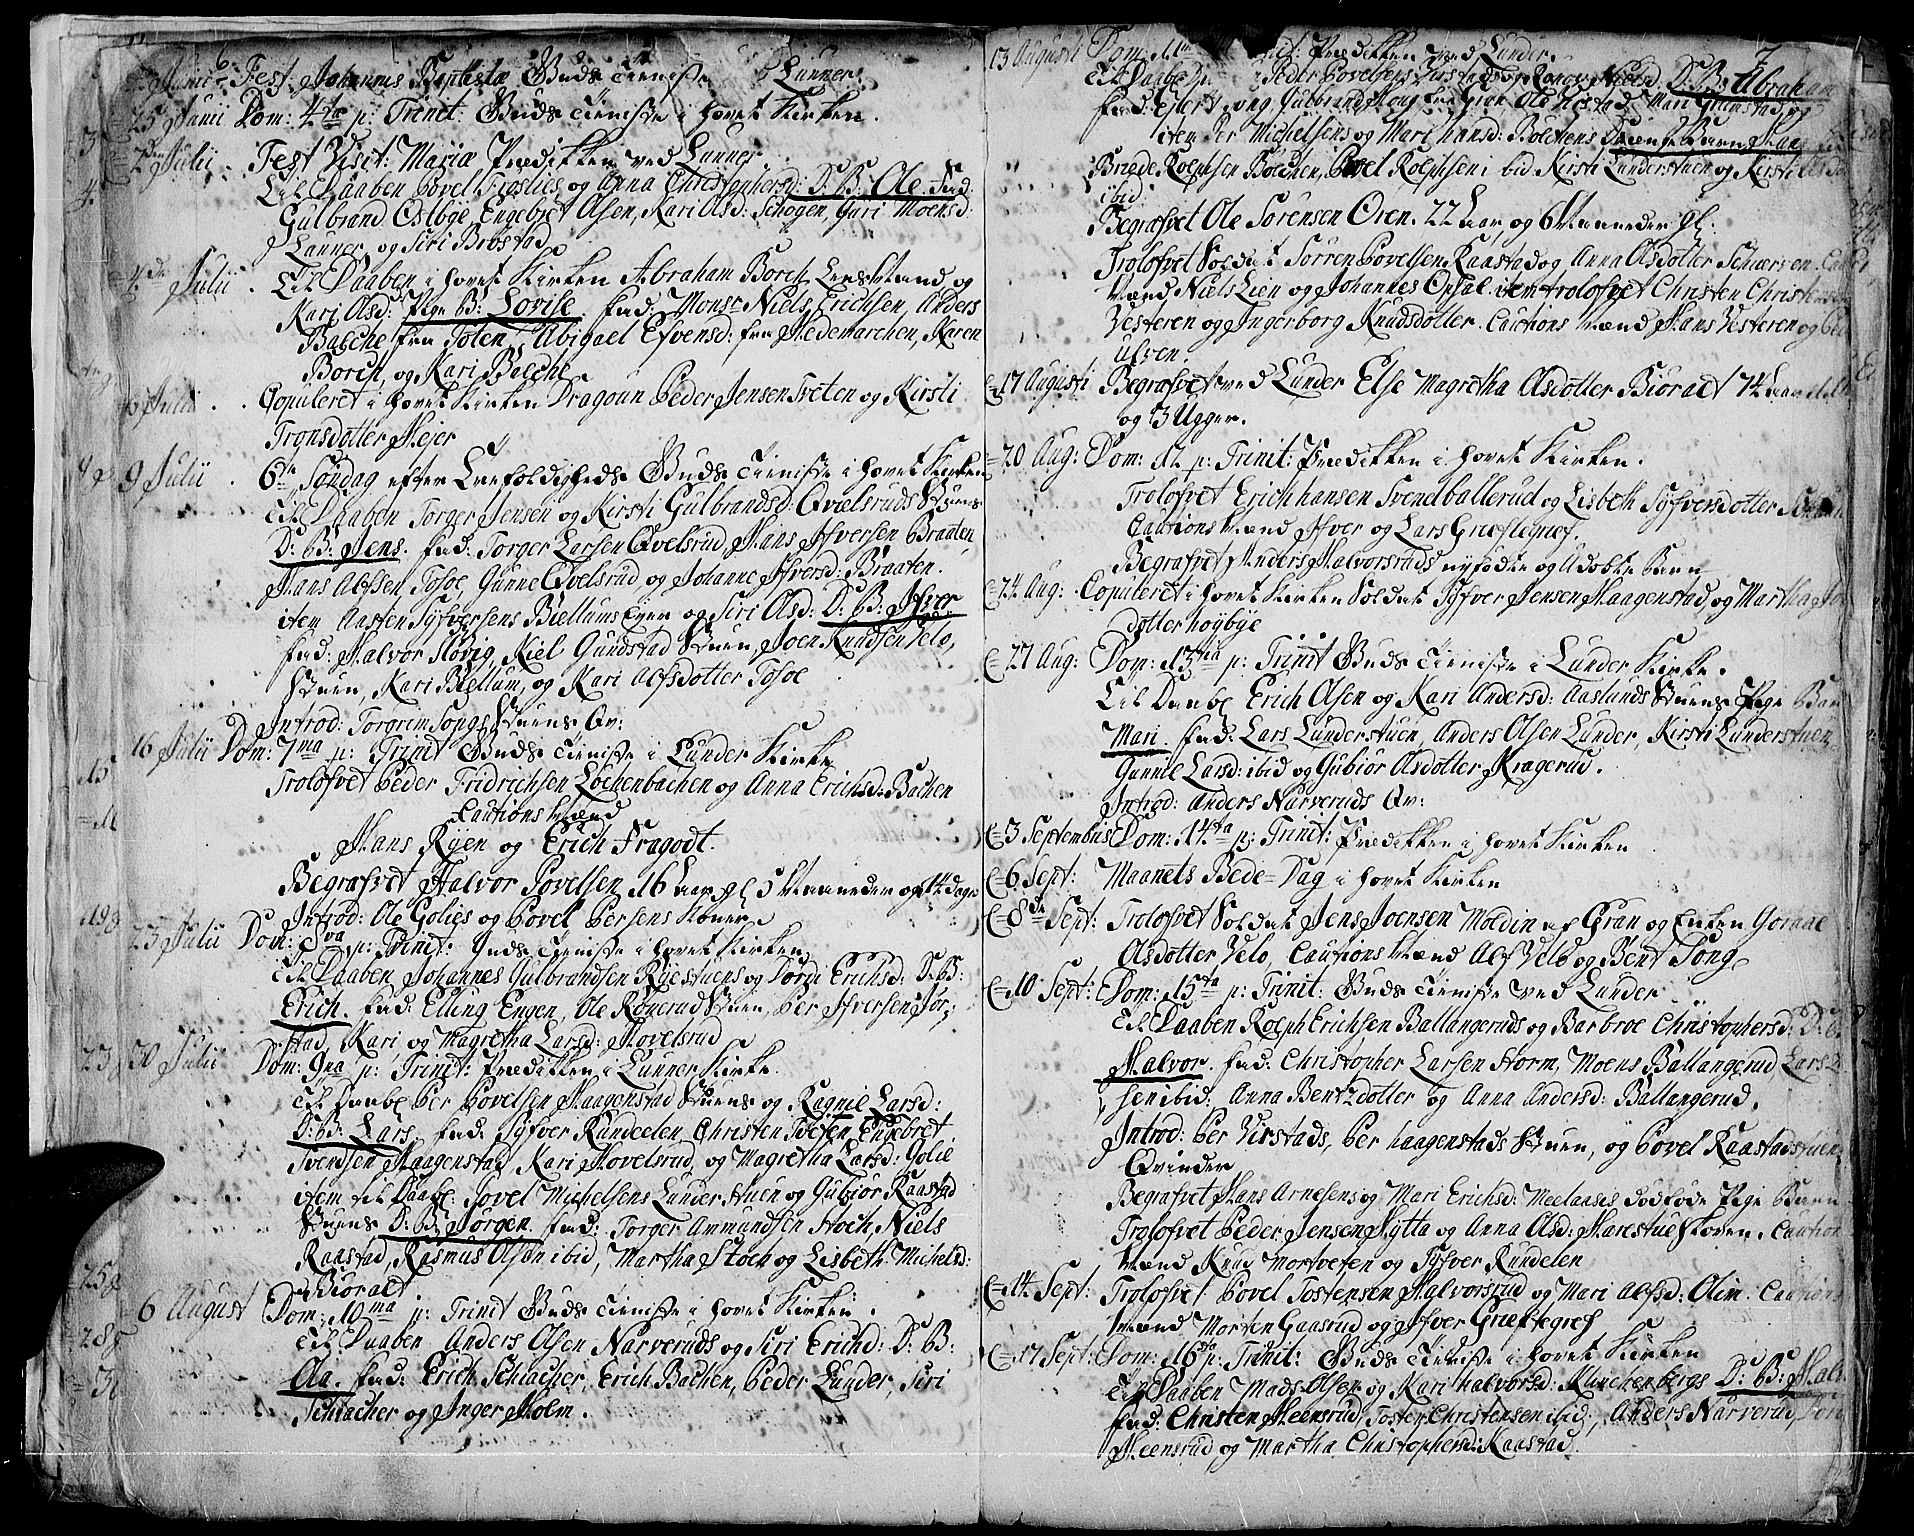 6
Junii Fest: Johannis Baptistæ Guds Tieniste Lunner.
25 Junii Dom: 4ta p: Trinit: Guds Tieniste i Hovet Kirken.
2den Julii Fest Visit: Mariæ Prædikken ved Lunner
Til Daaben Povel Fioslies og Anna Christophersd: D: B: Ole Fad:
Gulbrand Ostbye, Engebret Olsen, Kari Olsd: Schogen, Guri Moensd:
Lunner og Siri Brobstad
4de Julii. Til Daaben i Hovet Kirken Abraham Borch Lensmand og
Kari Olsd: Pige B: Lovise Fad: Monsr Niels Erichsen, Anders
Balche fra Toten, Abigael Efvensd: fra Hedemarchen, Karen
Borch og Kari Balche
Julii Copuleret i Hovet Kirken Dragoun Peder Jensen Tveten og Kirsti
Tronsdotter Hejer
9 Julii. 6te Søndag efter Trefoldigheds Guds Tieniste i Hovet Kirken
Til Daaben Torger Jensen og Kirsti Gulbrandsd: Qvælsruds
D: B: Jens. Fad: Torger Larsen Qvelsrud, Hans Ifversen Braaten,
Hans Alfsen Tosoe, Gunne Qvelsrud og Johanne Ifversd: Braaten.
item Aasten Syfversens Biellums Eyer og Siri Olsd: D: B: Ifver
Fad: Halvor Hovig, Niel Gundstad Stuen, Joen Knudsen Velo,
Stuen, Kari Biellum, og Kari Alfsdotter Tosoe
Introd: Torgrim Songs Stuens Qv:
16 Julii Dom: 7ma p: Trinit Guds Tieniste i Lunder Kirke
Trolofvet Peder Fridrichsen Lochenbachen og Anna Erichsd: Bachen
Cautions Mænd
Hans Ryen og Erich Fragodt.
Begrafvet Halvor Povelsen 16 Aar gl 5 Maaneder og 14 dage
Introd: Ole Golies og Povel Persens Koner
23 Julii Dom: 8va p: Trinit: Guds Tieniste i Hovet Kirken
Til Daaben Johannes Gulbrandsen Ryestuens og Dordi Erichsd: D: B:
Erich. Fad: Elling Engen, Ole Rønerud Stuen, Per Ifversen Jor-
stad, Kari og Magretha Larsd: Hovelsrud
30 Julii Dom: 9na p: Trinit: Prædikken i Lunner Kirke
Til Daabe Per Povelsen Haagenstad Stuens og Ragnil Larsd:
D: B: Lars. Fad: Syfver Rundeelen, Christen Tveten, Engebret
Svendsen Haagenstad Kari Hovelsrud, og Magretha Larsd: Golie
item til Daabe Povel Michelsens Lunder Stuen og Gubior Raastad
Stuens D: B: Jørgen Fad: Torger Ammundsen Hoch, Niels
Raastad, Rasmus Olsøn ibid, Martha Stoch og Lisbeth Michelsd:
Bioralt.
6 August Dom: 10ma p: Trinit Guds Tieniste i Hovet Kirken.
Til Daaben Anders Olsen Narveruds og Siri Erichd: D: B:
Aa. Fad: Erich Schiacher, Erich Bachen, Peder Lunder, Siri
Schiacher og Inger Holm.
7
13 Augusti Dom: Trinit: Prædikken ved Lunder.
Til Daabe Peder Povelsens Virstads og Niels d. D: B: Abraham
Fad: Gulbrand Houg fra Gran Ole Kostad, Mari Grimstad og
item Per Michelsens og Mari Hansd: Bolchens Drænge Barn Haag
Briede Rolphsen Bolchen, Povel Rolphsen ibid Kirsti Lunderstuen og Kirsti
ibid
Begrafvet Ole Sørensen Oren. 22 Aar, og 6 Maaneder gl:
Trolofvet Soldat Sørren Povelsen Raastad og Anna Olsdotter Schiærven. Cautions
Mænd Niels Lien og Johannes Opsal item trolofvet Christen Christensen
Vesteren og Ingerborg Knudsdotter. Cautions Mænd Hans Vesteren og
Ulven.
17 Augusti Begrafvet ved Lunder Else Magretha Olsdotter Bioralt 74 Aar
og 3 Uger.
20 Aug: Dom: 12 p: Trinit: Prædikken i Hovet Kirken.
Trolofvet Erich Hansen Svendballerud og Lisbeth Syfversdotter
Cautions Mænd Ifver og Lars Griefslegrief.
Begrafvet Anders Halvorsruds nyfødte og Udøbte Barn
24 Aug: Copuleret i Hovet Kirken Soldat Syfver Jensen Haagenstad, og Martha
dotter Høybye
27 Aug: Dom: 13tia p: Trinit Guds Tieniste i Lunder Kirke.
Til Daabe Erich Olsen og Kari Andersd: Aaslunds Stuens Pige Bar
Mari. Fad: Lars Lunderstuen, Anders Olsen Lunder, Kirsti Lunderstuen,
Gunnil Larsd: ibid og Gubiør Olsdotter Kragerud.
Introd: Anders Narveruds Qv:
3 Septembris Dom: 14ta p: Trinit: Prædikken i Hovet Kirken
6 Sept: Maanets Bede-Dag i Hovet Kirken
8de Sept: Trolofvet Soldat Jens Joensen Moldin af Gran og Enken Goraal
Olsdotter Velo, Cautions Mænd Alf Velo og Bent Song
10 Sept: Dom: 15ta p: Trinit: Guds Tieniste ved Lunder
Til Daaben Rolph Erichsen Ballangeruds og Barbroe Christophersd: D: B
Halvor. Fad: Christopher Larsen Horm, Moens Ballangerud, Lars
sen ibid: Anna Bentzdotter og Anna Andersd: Ballangerud.
Introd: Per Virstads, Per Haagenstads Stuen, og Povel Raastadstuens
Qvinder
Begrafvet Hans Arnesens og Mari Erichsd: Meelaases dødføde Pige Barn
Trolofvet Peder Jensen Hytta og Anna Olsd: Harestue Skoven. Caution
Mænd Knud Mortvesen og Syfver Rundelen
14 Sept: Trolofvet Povel Tostensen Halvorsrud og Mari Alfsd: Olim. Cautions
Mænd Morten Gaasrud og Ifver Grieftegref
17 Sept: Dom: 16de p: Trinit: Guds Tieniste i Hovet Kirken
Til Daaben Mads Olsen og Kari Halvorsd: Munchenbergs D: B: Hal
Fad: Christen Heensrud, Tosten Christensen ibid, Anders Narverud,
Heensrud og Martha Christophersd: Raastad.